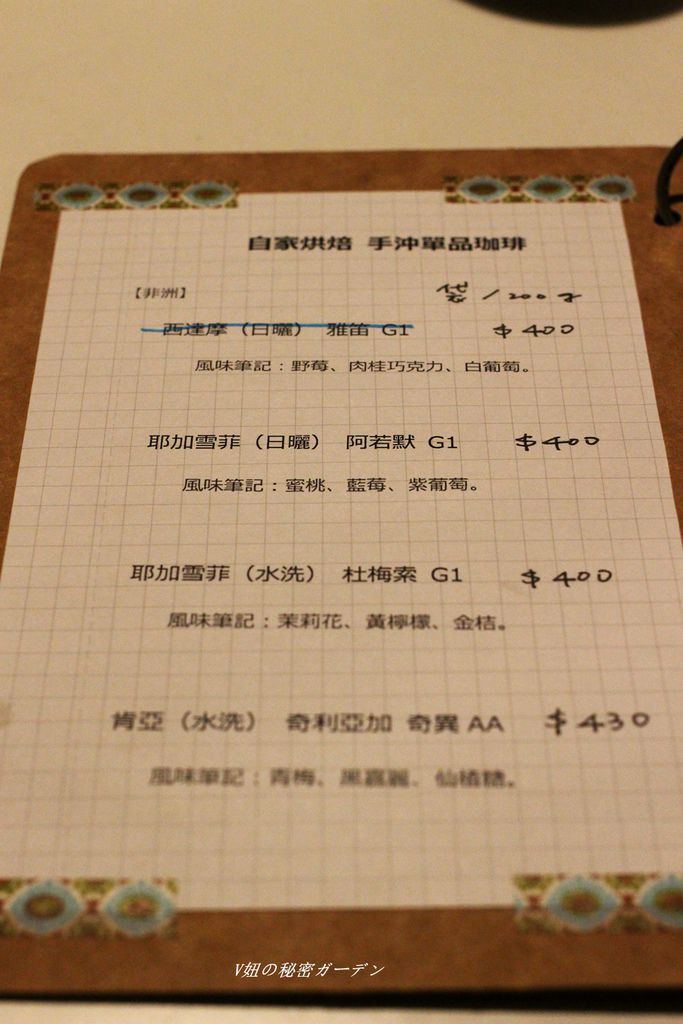 自家烘焙 手沖單品珈琲
【非洲】 袋/200g
西達摩（日曬） 雅笛 G1 $400
風味筆記：野莓、肉桂巧克力、白葡萄。
耶加雪菲（日曬） 阿若默 G1 $400
風味筆記：蜜桃、藍莓、紫葡萄。
耶加雪菲（水洗） 杜梅索 G1 $400
風味筆記：茉莉花、黃檸檬、金桔。
肯亞（水洗） 奇利亞加 奇異 AA $430
風味筆記：青梅、黑嘉麗、仙楂糖。
V妞の秘密ガーデン